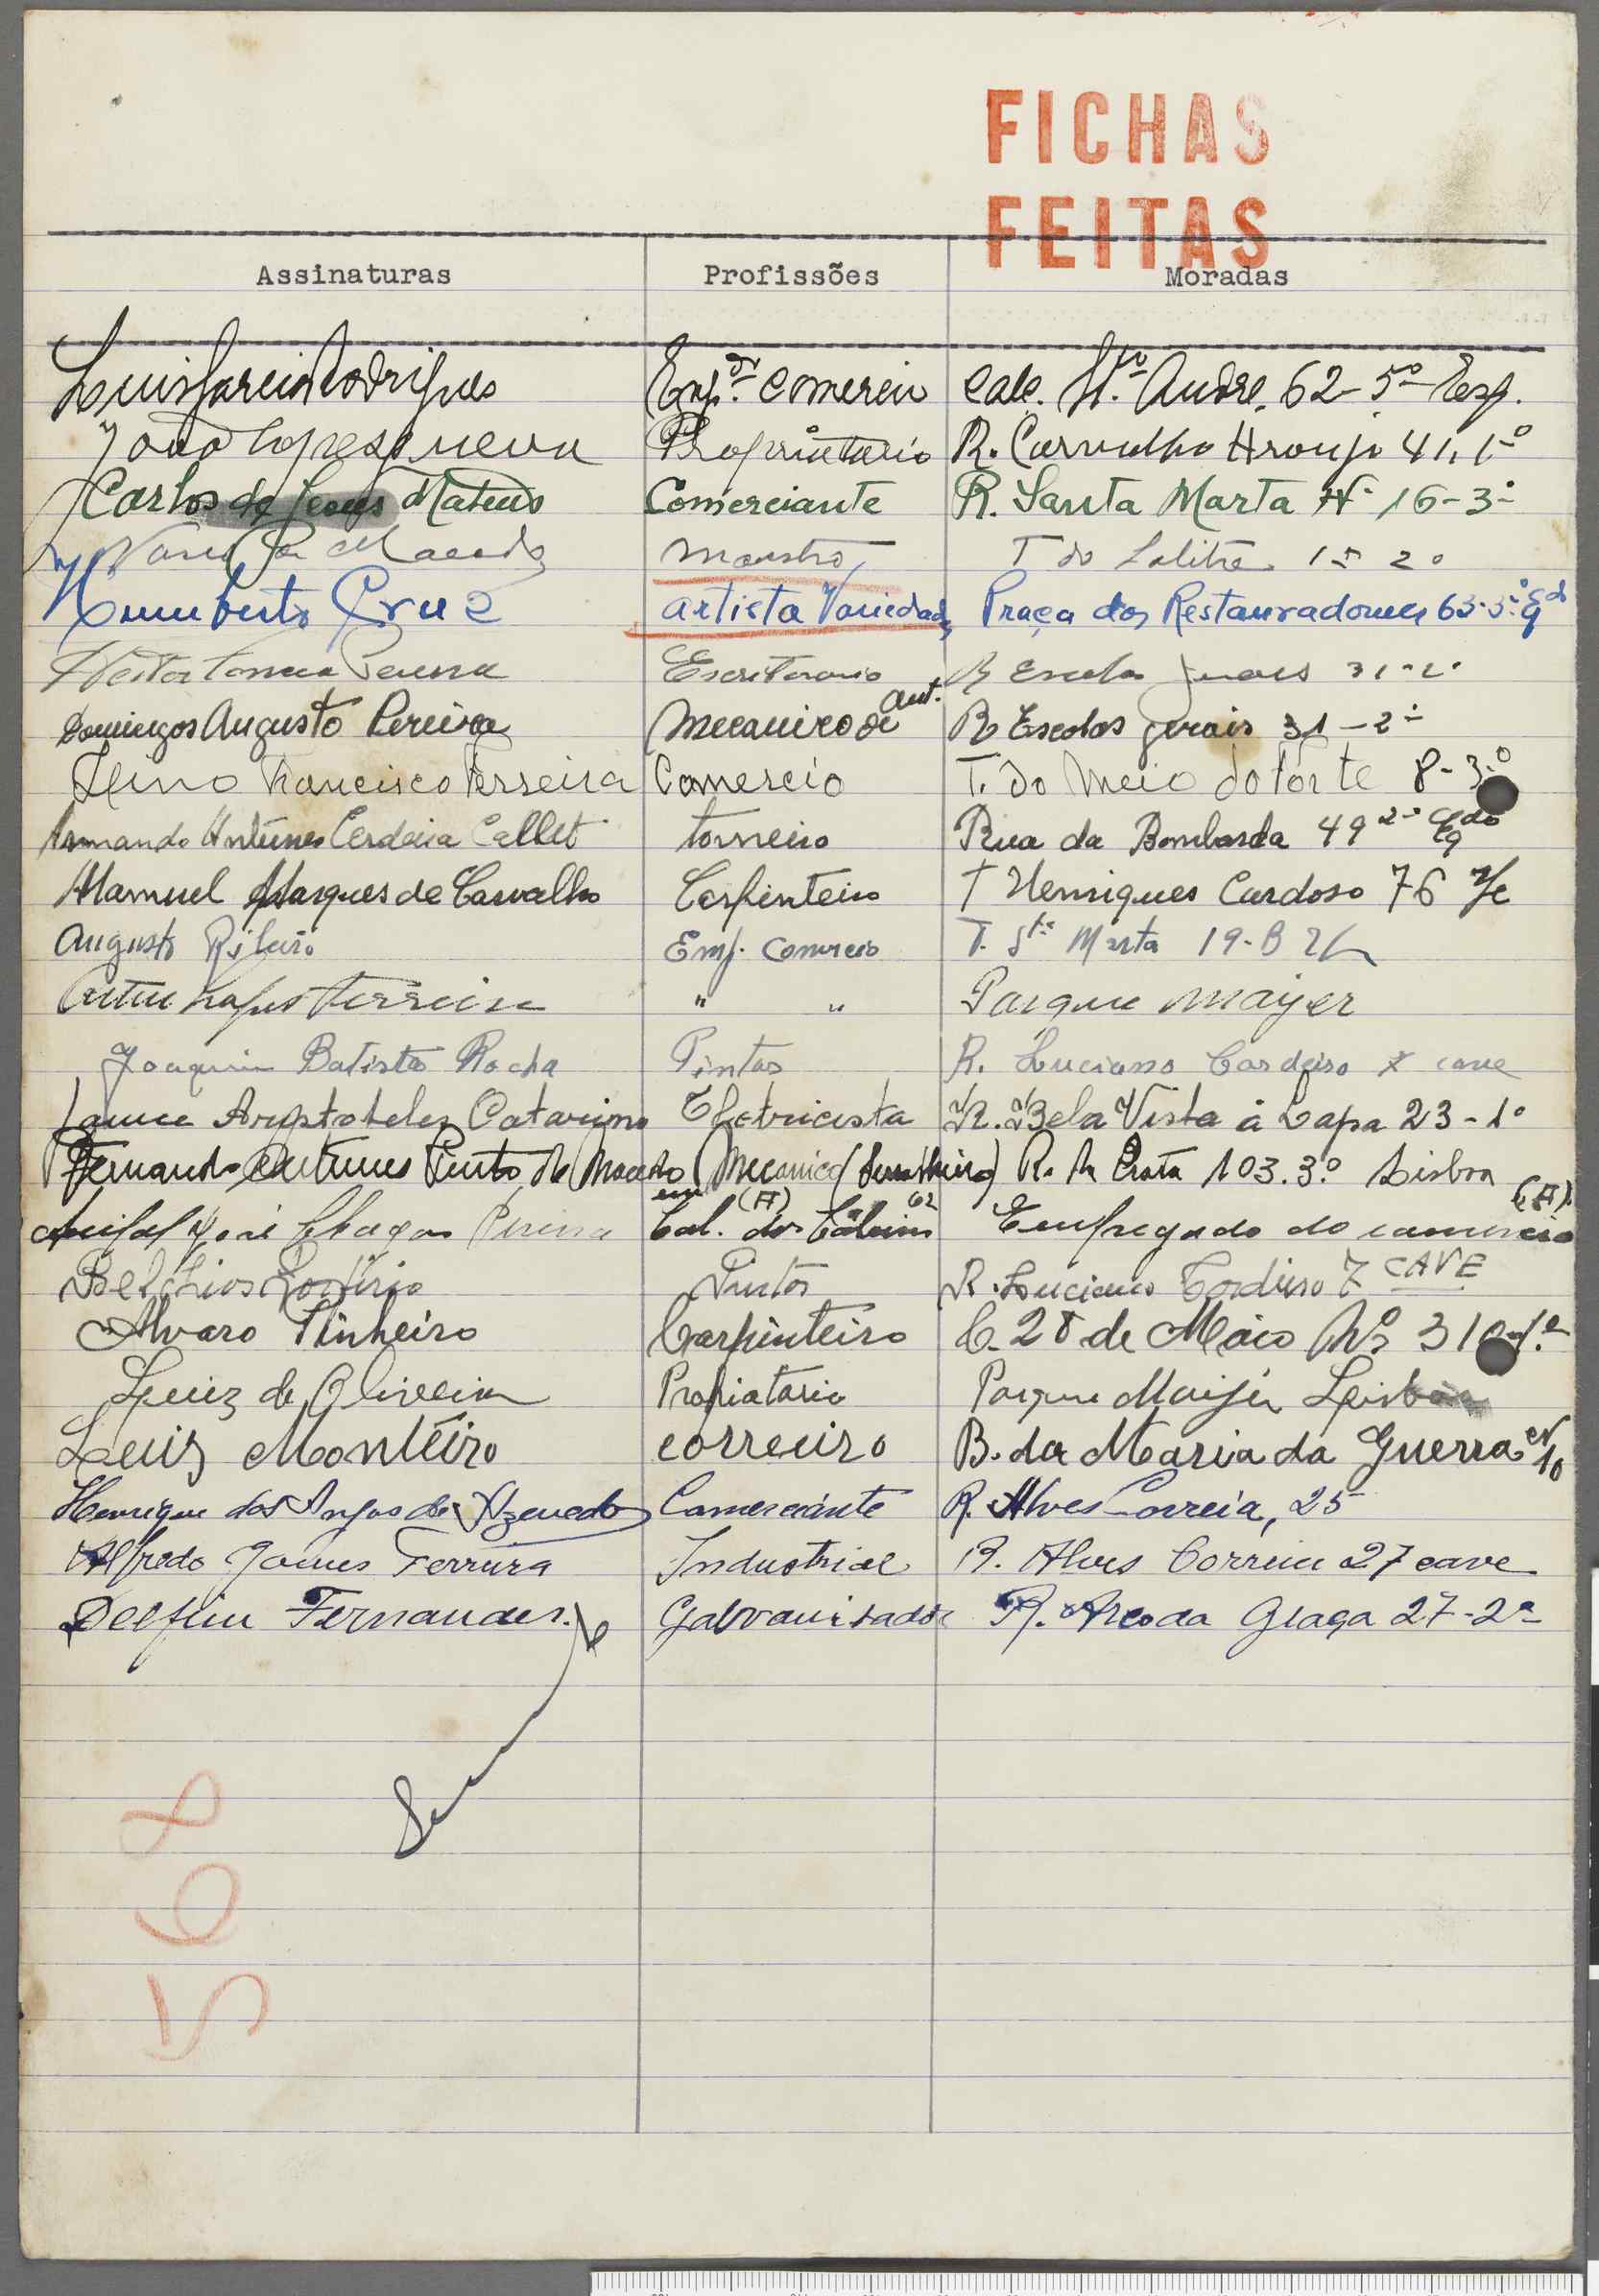 FICHAS
FEITAS
Assinaturas Profissões Moradas
Luis Garcia Rodrigues Emp. Comercio Calc. Sto. André, 62-5º Esq.
João Lopes Proprietario R. Carvalho Araujo 41, 1º
Carlos de Jesus Mateus Comerciante R. Santa Marta Nº 16-3º
de Macedo Maestro T do Salitre 15 2º
Humberto Cruz artista Variedades Praça dos Restauradores 63-3º
Pereira Escriturario R Escolas Gerais 31-2º
Domingos Augusto Pereira Mecanico de aut. R Escolas gerais 31-2º
Francisco Ferreira Comercio T. do Meio do forte 8-3.º
Armando Antunes Cerdeira Callet torneiro Rua da Bombarda 49 2º
Manuel Marques de Carvalho Carpinteiro T Henriques Cardoso 76
Augusto Ribeiro Emp. Comercio T. Sta Marta 19-B
Artur Lopes Ferreira " " Parque Mayer
Joaquim Batista Rocha Pintor R. Luciano Cordeiro 7 cave
Aristoteles Catarino Eletricista R. Bela Vista á Lapa 23-1º
Fernando Antunes Pinto de Macedo Mecanico (Serralheiro) R. da Prata 103.3.º Lisboa
José Chagas Cal. dos (A) 62 Empregado do comercio (A)
Belchior Porfirio Pintor R. Luciano Cordeiro 7 CAVE
Alvaro Pinheiro Carpinteiro C. 28 de Maio Nº 310-1º
Luiz de Oliveira Propiatario Parque Lisboa
Luiz Monteiro correeiro B. da Maria da Guerra 10
Henrique dos Anjos de Azevedo Comerciante R. Alves Correia, 25
Alfredo Gomes Ferreira Industrial R. Alves Correia 27 cave
Delfim Fernandes Galvanisador R. Arco da Graça 27-2º
568